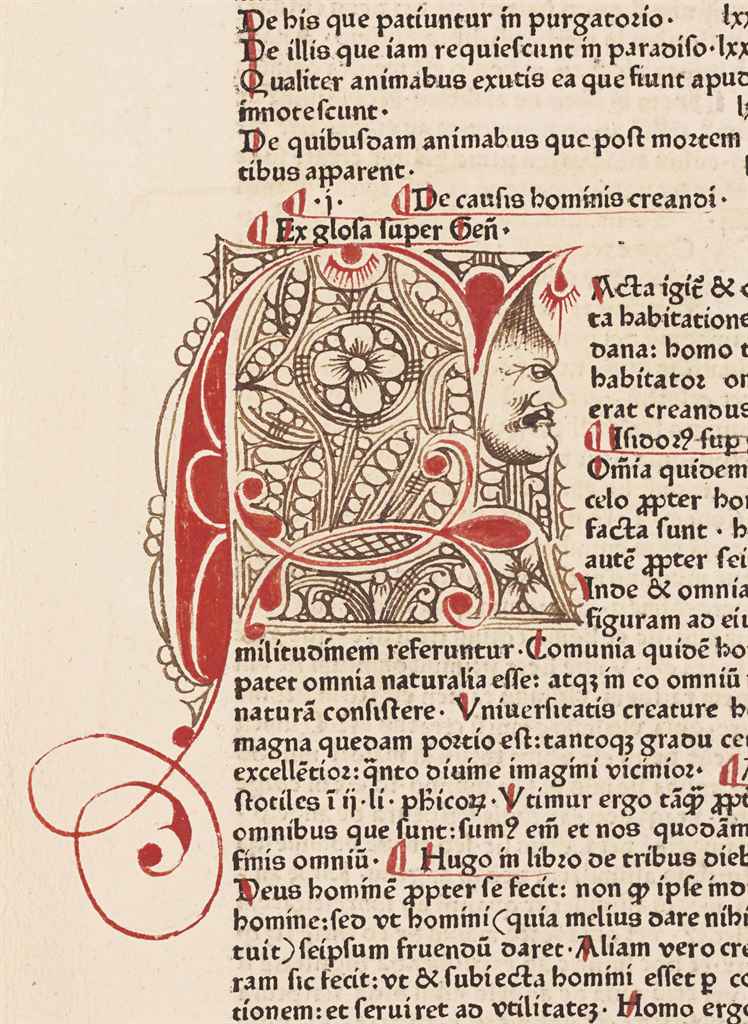 De his que patiuntur in purgatorio·
De illis que iam requieſcunt in paradiſo·lxx
Qualiter animabus exutis ea que fiunt apud
innoteſcunt·
De quibuſdam animabus que poſt mortem
tibus apparent·
·j· De cauſis hominis creandi·
Ex gloſa ſuper Geñ·
Acta igit̄ &
ta habitatione
dana: homo
habitator
erat creandus
Iſidorꝰ ſup
Om̄ia quidem
celo ꝓpter
facta ſunt·
autē ꝓpter
Inde & omnia
figuram ad
militudinem referuntur·Comunia quidē
patet omnia naturalia eſſe: atqꝫ in eo omniū
naturā conſiſtere· Vniuerſitatis creature
magna quedam portio eſt:tantoqꝫ gradu
excellētior: q̄nto diuine imagini vicinior·
ſtotiles ī ij·li· phicoꝝ·Vtimur ergo tāꝙ̄
omnibus que ſunt:ſumꝰ em̄ et nos quodām
finis omniū· Hugo in libro de tribus dieb
Deus hominē ꝓpter ſe fecit: non ꝙ ipſe ind
homine:ſed vt homini(quia melius dare nihi
tuit)ſeipſum fruendū daret·Aliam vero cre
ram ſic fecit:vt & ſubiecta homini eſſet ꝑ
tionem:et ſeruiret ad vtilitateꝫ· Homo ergo